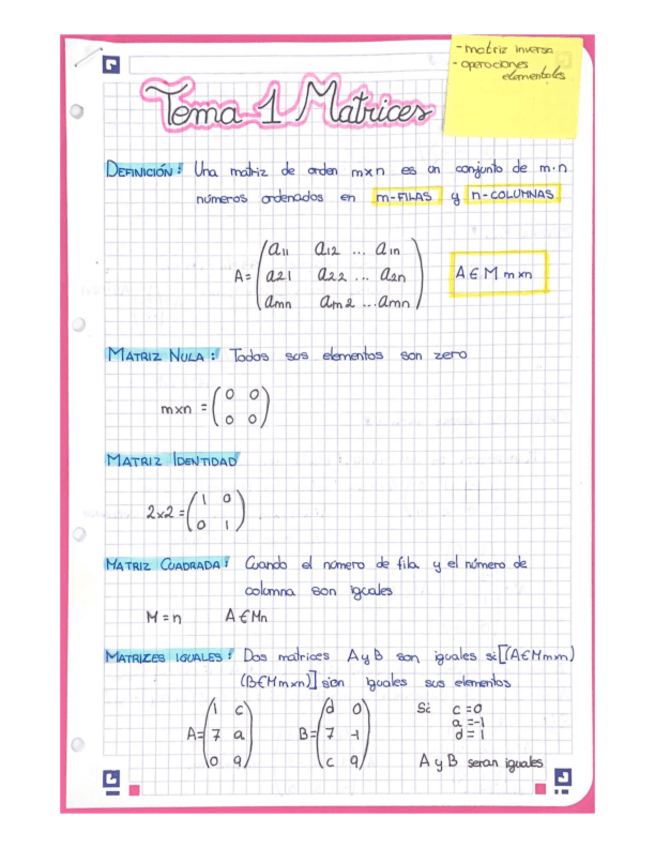 - matriz inversa
- operaciones
elementales
Tema 1 Matrices
DEFINICIÓN: Una matriz de orden mxn es un conjunto de m·n
números ordenados en m-FILAS y n-COLUMNAS
A= (a11 a12 ... a1n
a21 a22 ... a2n
amn am2 ... amn)
A ∈ M mxn
MATRIZ NULA: Todos sus elementos son zero
mxn = (0 0
0 0)
MATRIZ IDENTIDAD
2x2 = (1 0
0 1)
MATRIZ CUADRADA: Cuando el número de fila y el número de
columna son iguales
M = n A ∈ Mn
MATRIZES IGUALES: Dos matrices A y B son iguales si [(A∈Mmxn)
(B∈Mmxn)] sion iguales sus elementos
A= (1 c
7 a
0 9)
B= (d 0
7 -1
c 9)
Si c=0
a=-1
d=1
A y B seran iguales